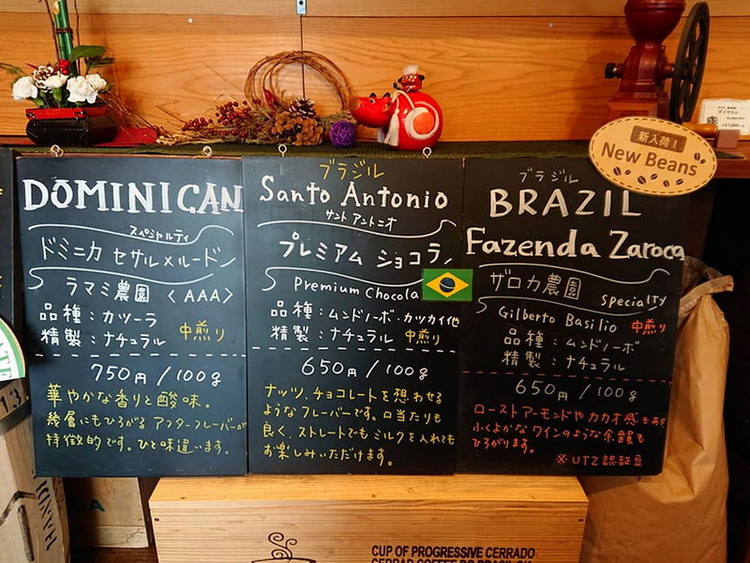 DOMINICAN
スペシャルティ
ドミニカ セサルメルードン
ラマミ農園 〈AAA〉
品種：カツーラ
精製：ナチュラル 中煎り
750円/100g
華やかな香りと酸味。
幾層にもひろがる アフターフレーバーが
特徴的です。ひと味違います。
ブラジル
Santo Antonio
サント アントニオ
プレミアム ショコラ
Premium Chocola
品種：ムンドノーボ・カツカイ他
精製：ナチュラル 中煎り
650円/100g
ナッツ、チョコレートを想わせる
ようなフレーバーです。口当たりも
良く、ストレートでも ミルクを入れても
お楽しみいただけます。
新入荷！
New Beans
ブラジル
BRAZIL
Fazenda Zaroca
ザロカ農園
Specialty
Gilberto Basilio 中煎り
品種：ムンドノーボ
精製：ナチュラル
650円/100g
ローストアーモンドやカカオ感もあり
ふくよかな ワインのような余韻も
ひろがります。
※UTZ認証豆
CUP OF PROGRESSIVE CERRADO